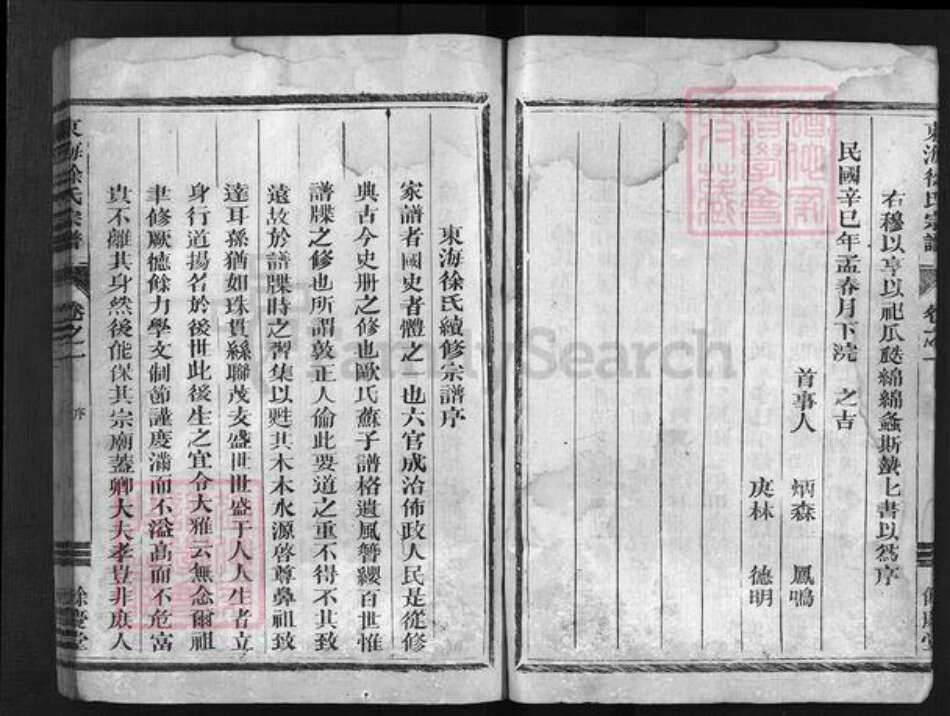 東海徐氏宗譜 卷之一
餘慶堂
右穆以享以祀瓜瓞綿綿螽斯蟄蟄上書以為序
民國辛巳年孟春月下浣 之吉
首事人 炳森 鳳鳴
庚林 德明
東海徐氏續修宗譜序
家譜者國史者體之一也六官成治佈政人民是從修
典古今史册之修也歐氏蘇子譜格遺風簪纓百世惟
譜牒之修也所謂敦正人倫此要道之重不得不其致
遠故於譜牒時之習集以甦其木本水源啓尊鼻祖致
達耳孫猶如珠貫絲聯茂支盛世世盛于人人生者立
身行道揚名於後世此後生之宜令大雅云無念爾祖
聿修厥德餘力學文制節謹度滿而不溢高而不危富
貴不離其身然後能保其宗廟蓋卿大夫孝豈非庶人
東海徐氏宗譜 卷之一 序
餘慶堂
FamilySearch